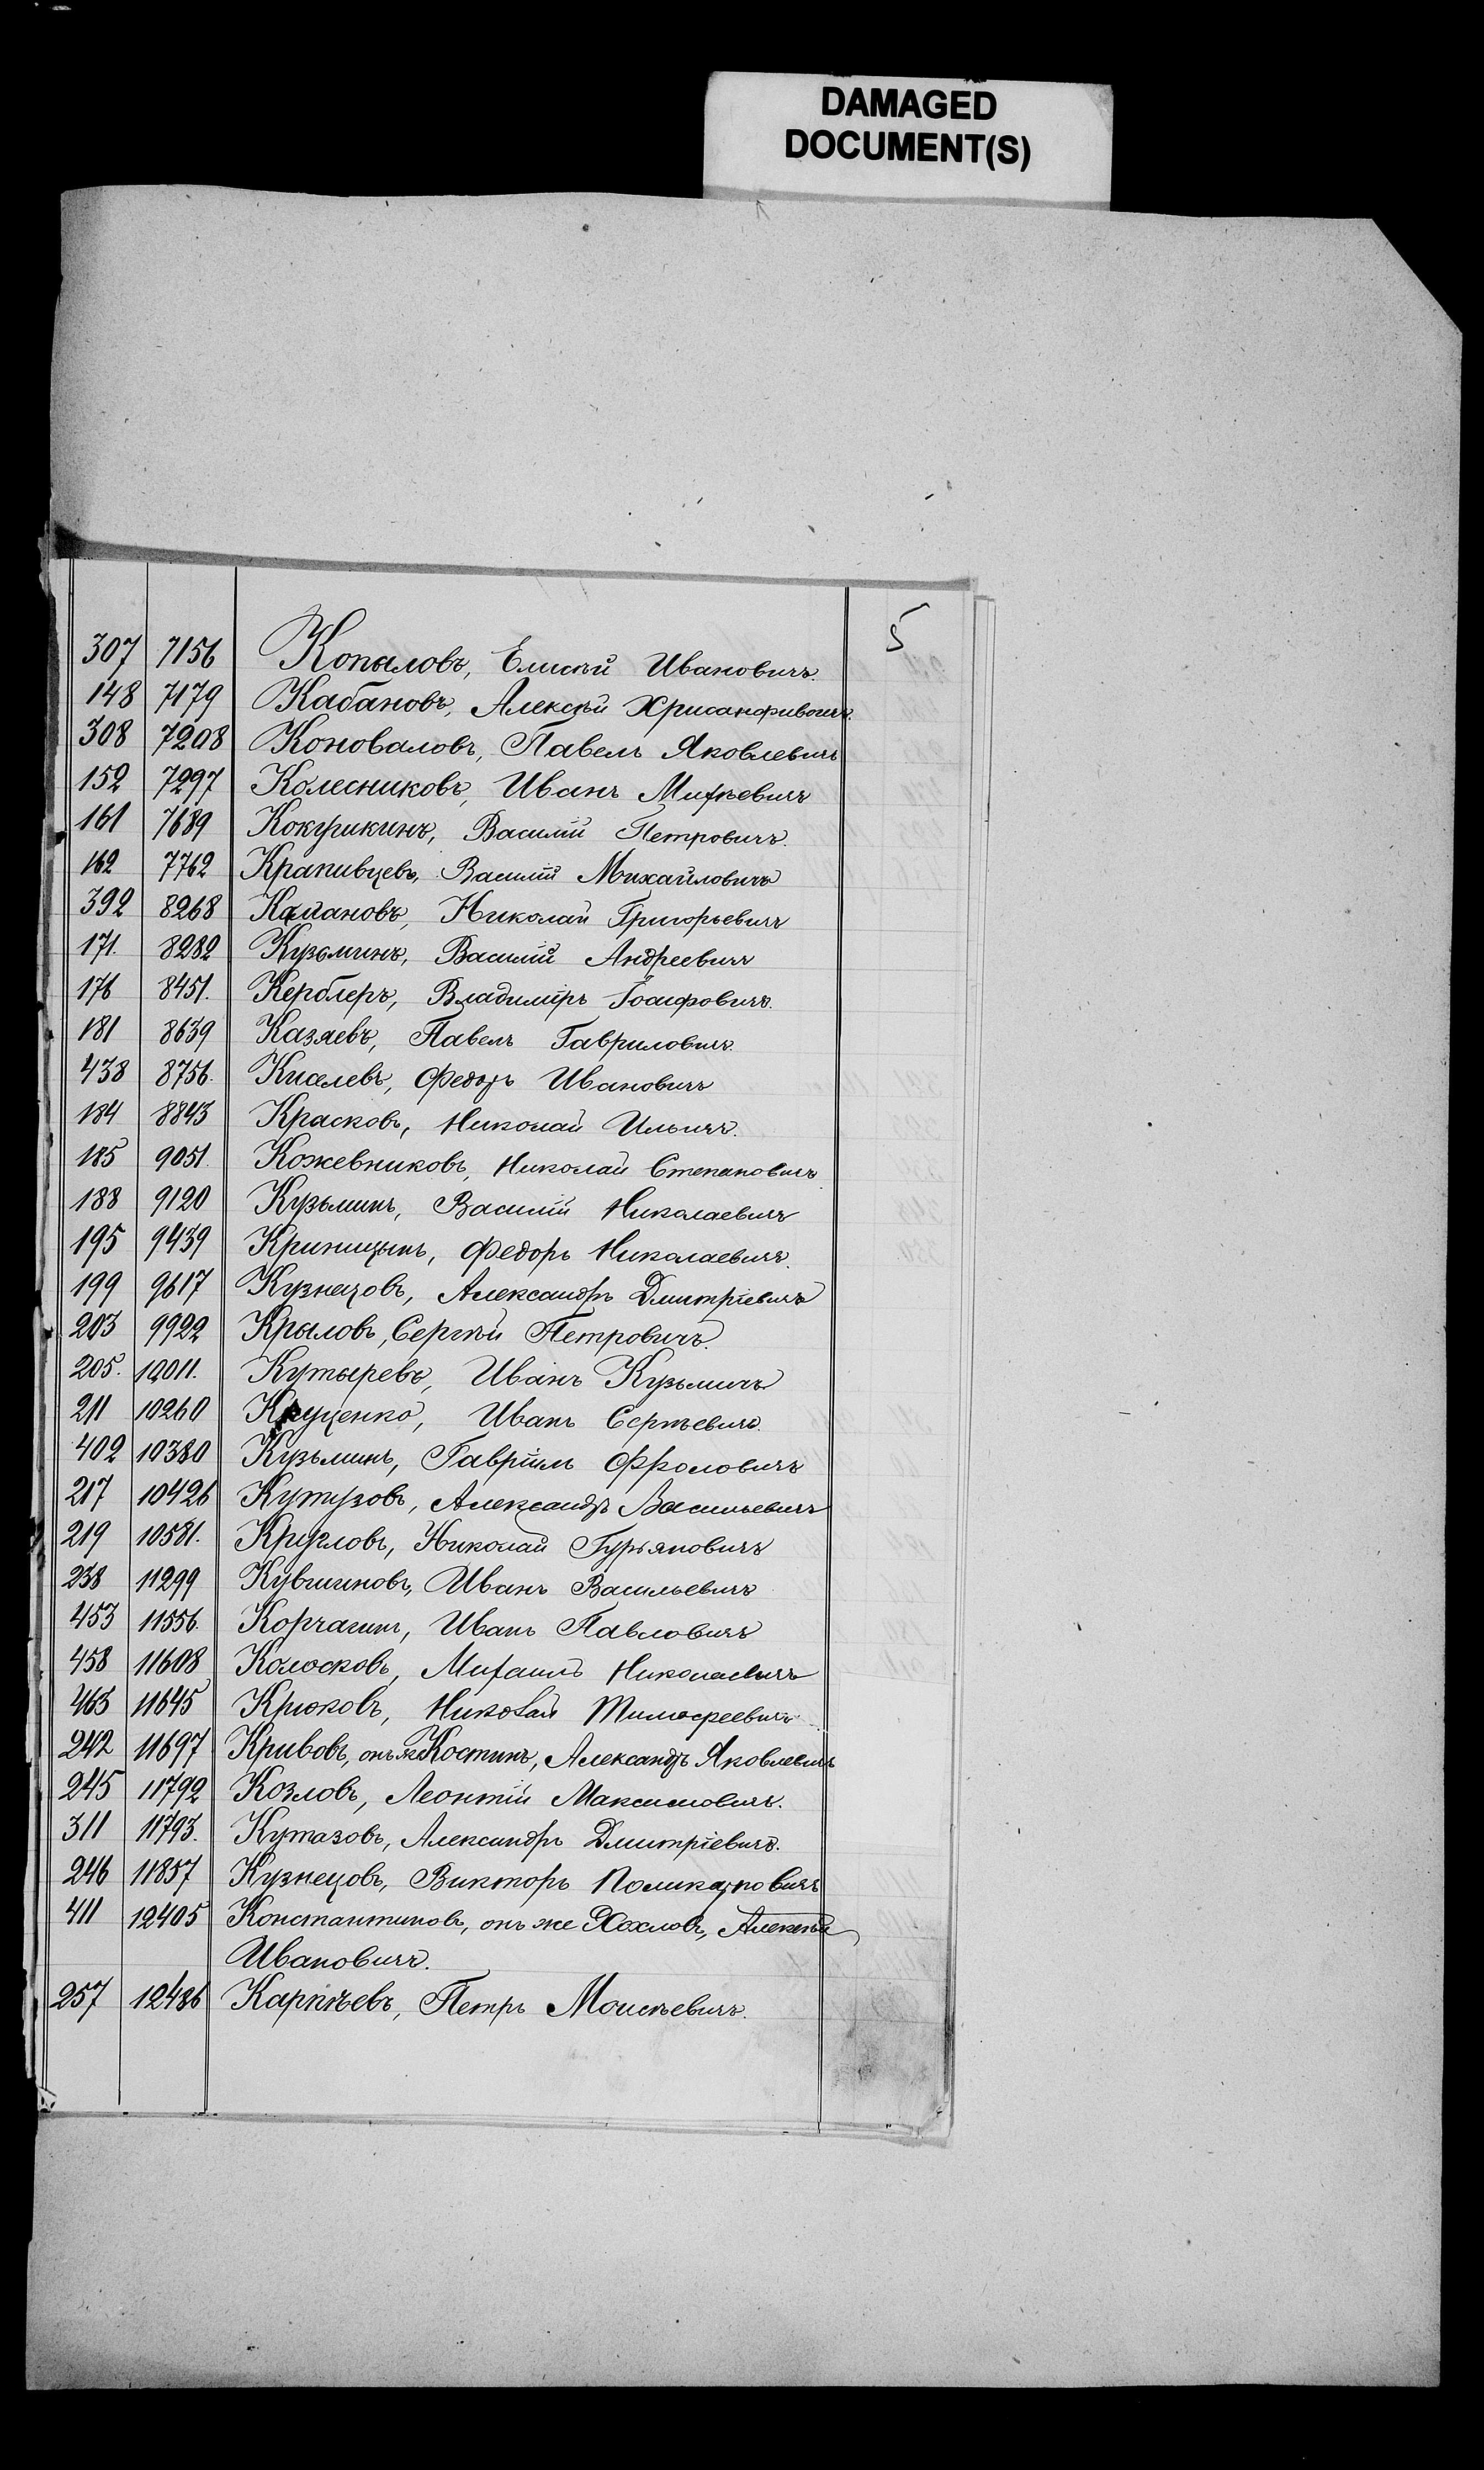 DAMAGED
DOCUMENT(S)
5
307 7156 Копыловъ, Елисѣй Ивановичъ.
148 7179 Кабановъ, Алексѣй Хрисанфивоичъ.
308 7208 Коноваловъ, Павелъ Яковлевичъ
152 7297 Колесниковъ, Иванъ Михѣевичъ
161 7689 Кокушкинъ, Василій Петровичъ.
162 7762 Крапивцевъ, Василій Михайловичъ
392 8268 Николай Григорьевичъ
171. 8282 Кузьминъ, Василій Андреевичъ
176 8451. Керблеръ, Владиміръ Іосифовичъ.
181 8639 Казяевъ, Павелъ Гавриловичъ.
438 8756. Киселевъ, Федоръ Ивановичъ
184 8843 Красковъ, Николай Ильичъ.
185 9051. Кожевниковъ, Николай Степановичъ
188 9120 Кузьминъ, Василій Николаевичъ
195 9439 Криницынъ, Федоръ Николаевичъ.
199 9617 Кузнецовъ, Александръ Дмитріевичъ
203 9922 Крыловъ, Сергѣй Петровичъ.
205. 10011. Кутыревъ, Иванъ Кузьмичъ
211 10260 Куценко, Иванъ Сергѣевичъ.
402 10380 Кузьминъ, Гавріилъ Фроловичъ
217 10426 Кутузовъ, Александръ Васильевичъ
219 10581. Кругловъ, Николай Гурьяновичъ
238 11299 Кувшиновъ, Иванъ Васильевичъ
453 11556. Корчагинъ, Иванъ Павловичъ
458 11608 Колосковъ, Михаилъ Николаевичъ
463 11645 Крюковъ, Николай Тимофеевичъ
242 11697 Кривовъ, онъ же Костинъ, Александръ Яковлевичъ
245 11792 Козловъ, Леонтій Максимовичъ.
311 11793. Кутазовъ, Александръ Дмитріевичъ.
246 11857 Кузнецовъ, Викторъ Поликарповичъ
411 12405 Константиновъ, онъ же Хохловъ, Алексѣй
Ивановичъ.
257 12486 Карпѣевъ, Петръ Моисѣевичъ.